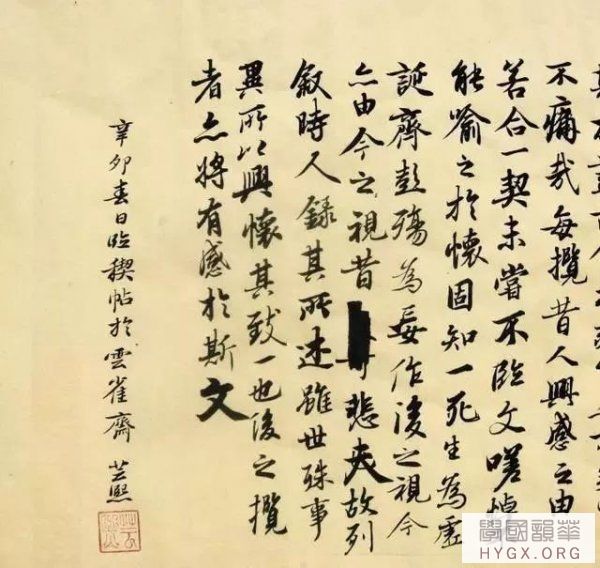 不痛哉每攬昔人興感之由
若合一契未嘗不臨文嗟悼
能喻之於懷固知一死生為虛
誕齊彭殤為妄作後之視今
亦由今之視昔悲夫故列
敘時人錄其所述雖世殊事
異所以興懷其致一也後之攬
者亦將有感於斯文
辛卯春日臨禊帖於雲雀齋 芸熙
學國韻華
HYGX.ORG